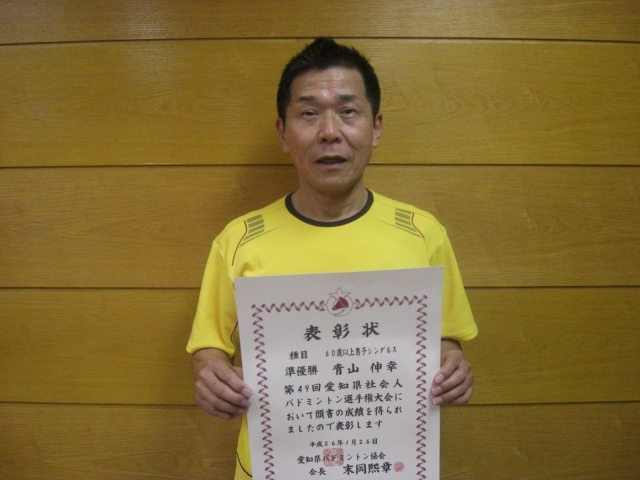 表彰状
種目 60歳以上男子シングルス
準優勝 青山 伸幸
第49回愛知県社会人
バドミントン選手権大会に
おいて頭書の成績を得られ
ましたので表彰します
平成26年1月26日
愛知県バドミントン協会
会長 末岡熙章